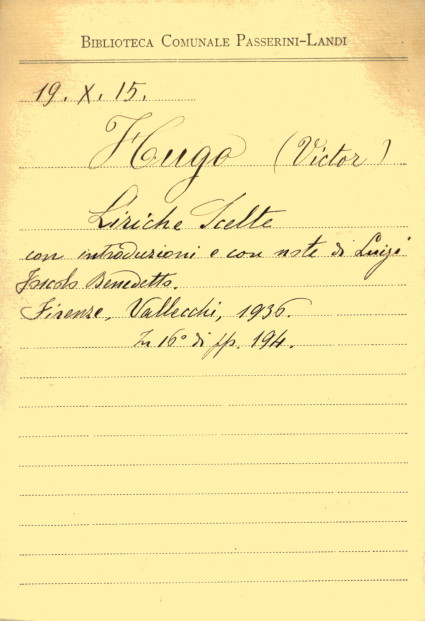 BIBLIOTECA COMUNALE PASSERINI-LANDI
19. X. 15.
Hugo (Victor)
Liriche Scelte
con introduzioni e con note di Luigi
Foscolo Benedetto.
Firenze, Vallecchi, 1936.
In 16° di pp. 194.